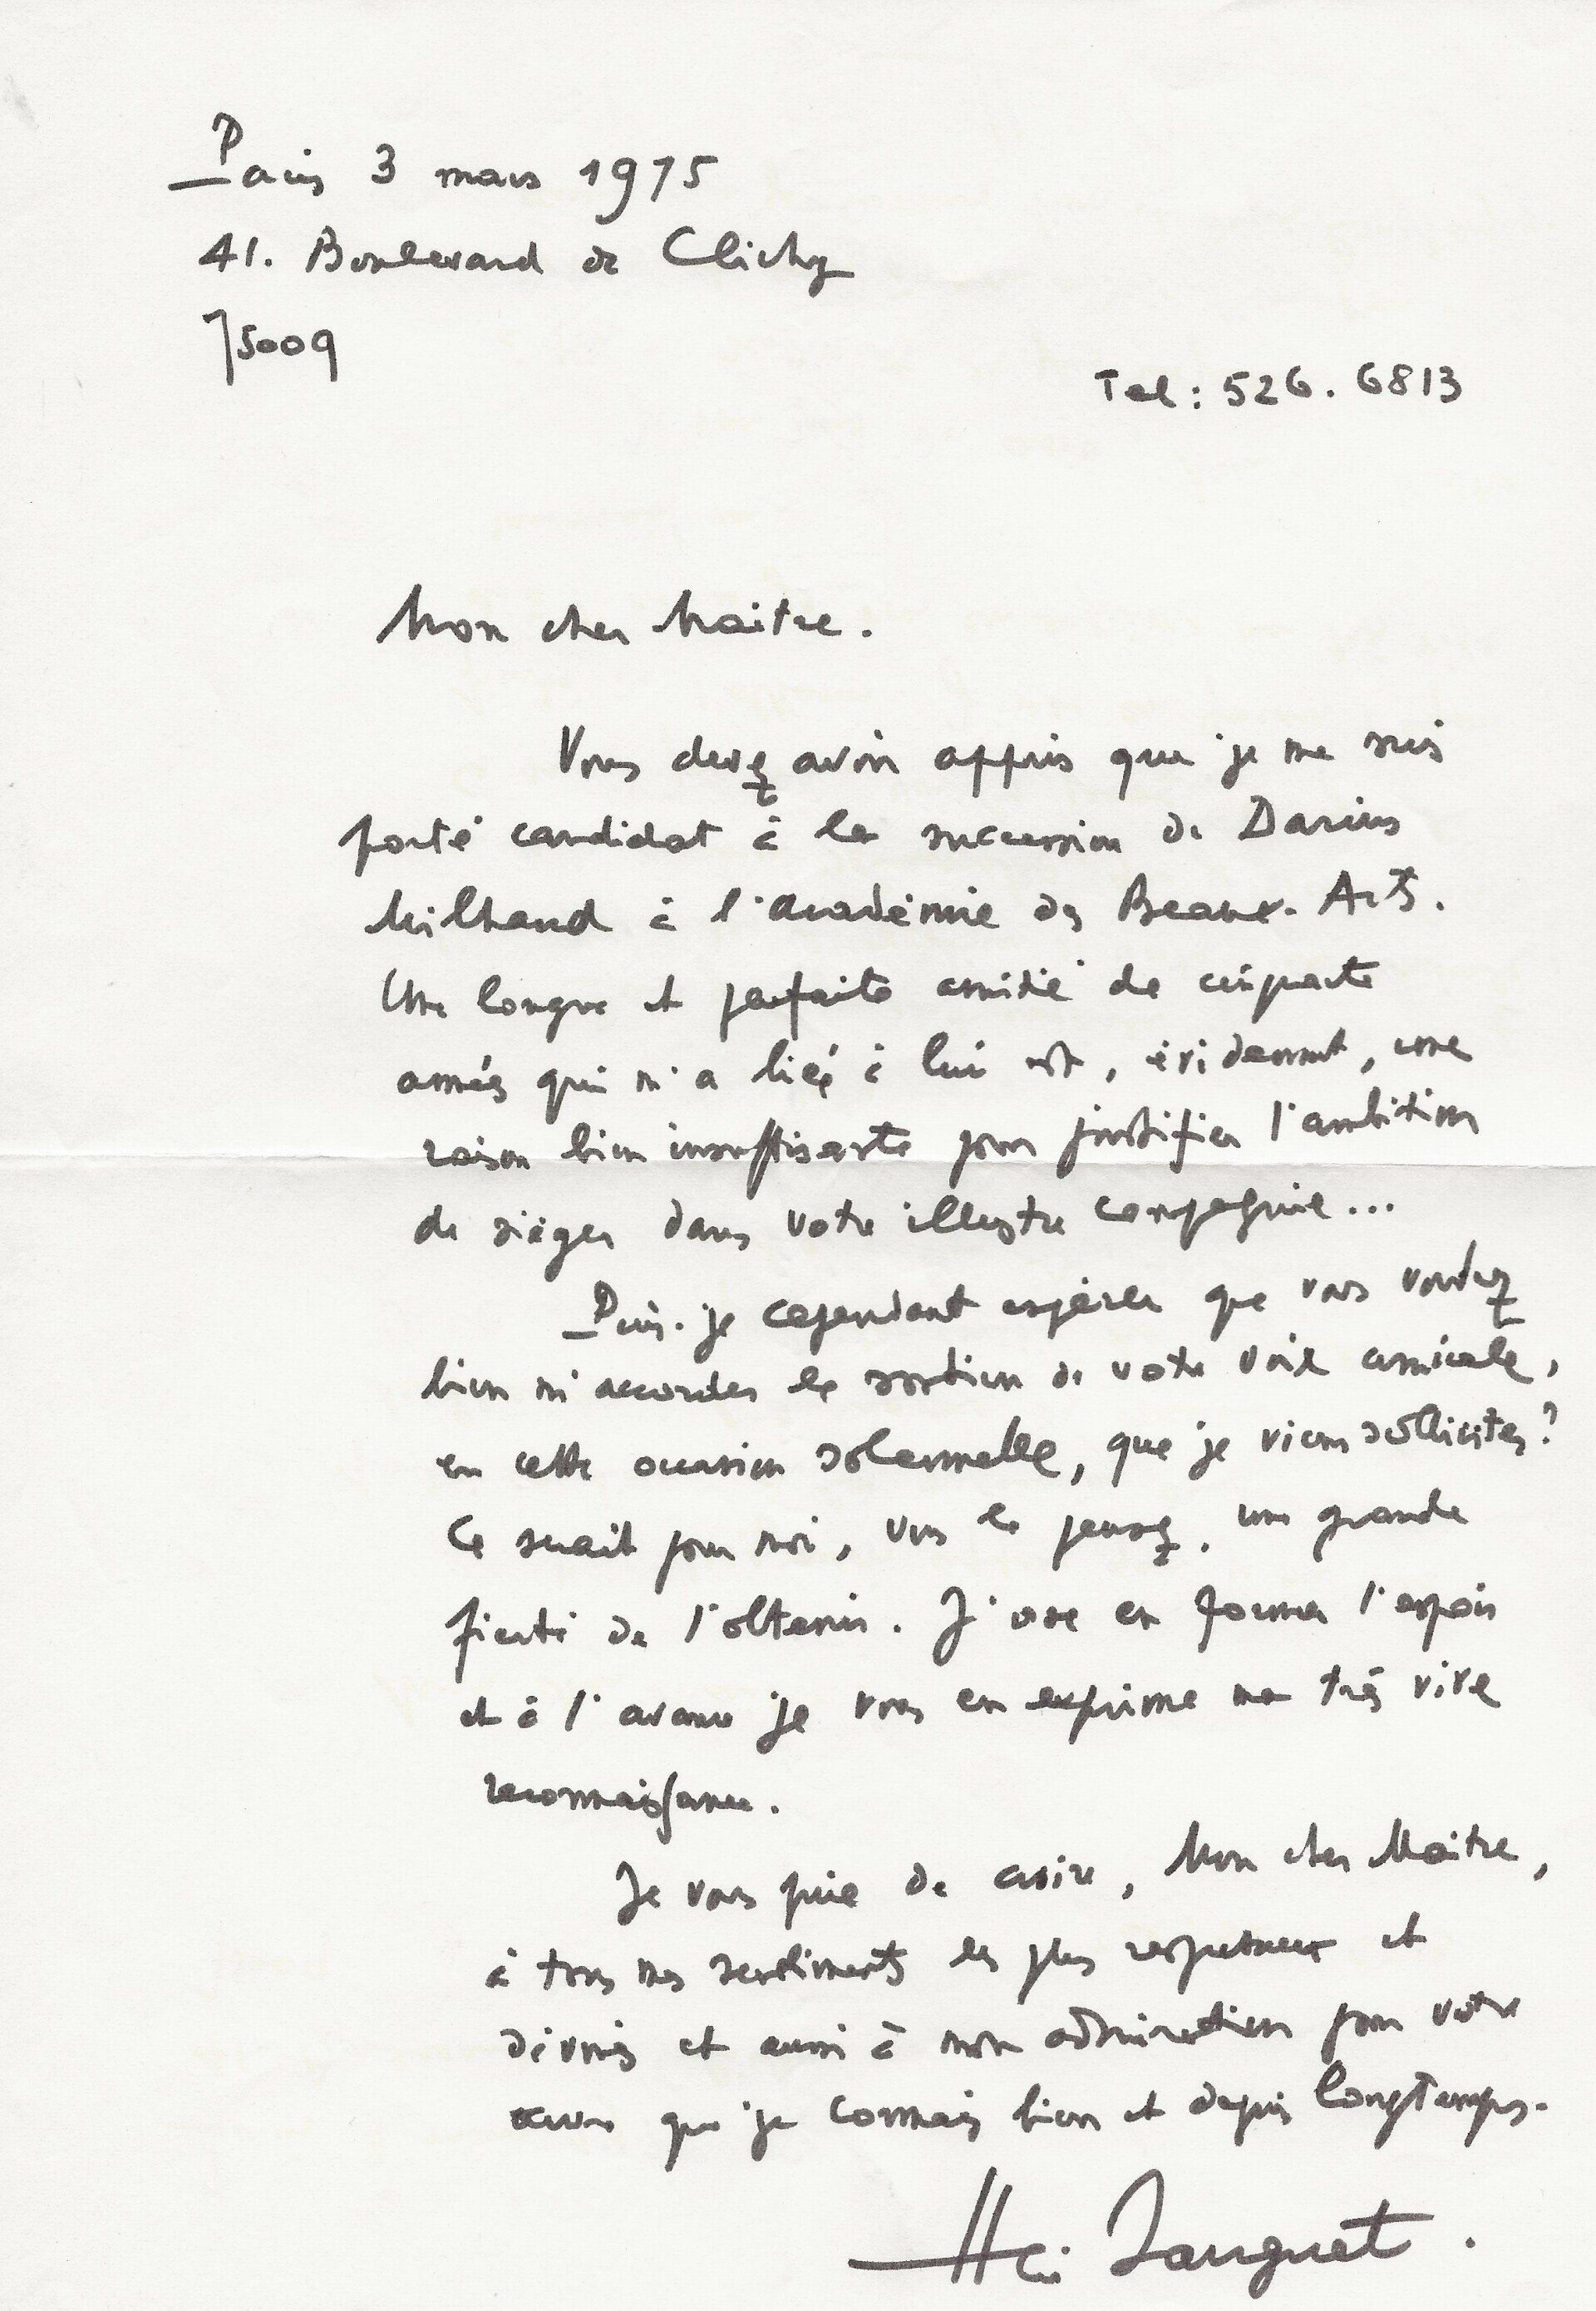 Paris 3 mars 1975
41. Boulevard de Clichy
75009
Tel : 526. 6813
Mon cher Maitre.
Vous devez avoir appris que je me suis
porté candidat à la succession de Darius
Milhaud à l'académie des Beaux-Arts.
Une longue et parfaite amitié de cinquante
années qui m'a lié à lui est, évidemment, une
raison bien insuffisante pour justifier l'ambition
de siéger dans votre illustre compagnie...
Puis-je cependant espérer que vous voudrez
bien m'accorder le soutien de votre voix amicale,
en cette occasion solennelle, que je viens solliciter ?
Ce serait pour moi, vous le pensez, une grande
fierté de l'obtenir. J'ose en former l'espoir
et à l'avance je vous en exprime ma très vive
reconnaissance.
Je vous prie de croire, Mon cher Maitre,
à tous mes sentiments les plus respectueux et
dévoués et aussi à mon admiration pour votre
œuvre que je connais bien et depuis longtemps.
Henri Sauguet.